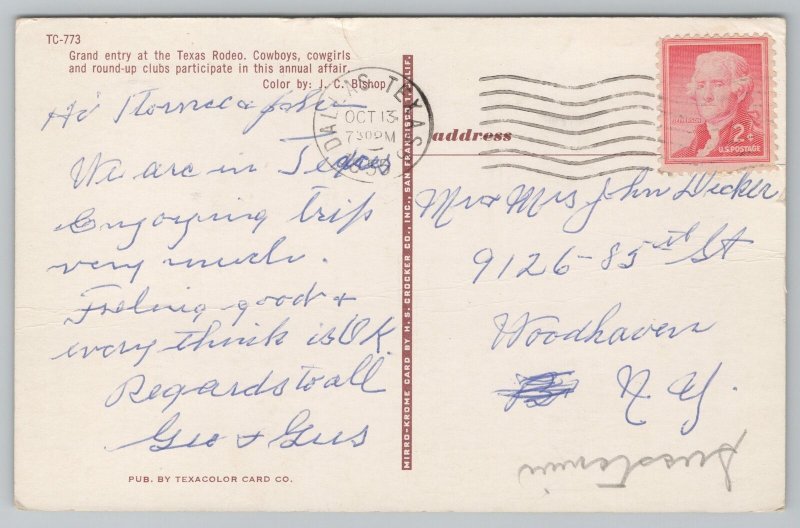 TC-773
Grand entry at the Texas Rodeo. Cowboys, cowgirls
and round-up clubs participate in this annual affair.
Color by: J. C. Bishop
Hi
We are in Texas
Enjoying trip
very much.
Feeling good +
every think is O.K.
Regards to all
Geo + Gus
PUB. BY TEXACOLOR CARD CO.
MIRRO-KROME CARD BY H. S. CROCKER CO., INC., SAN FRANCISCO, CALIF.
DALLAS TEXAS
OCT 13
730PM
address
JEFFERSON
2¢
U.S. POSTAGE
Mr + Mrs John Decker
9126-85th St
Woodhaven
N.Y.